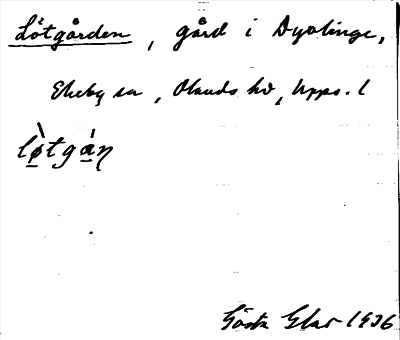 Lötgården, gård i Dyvlinge,
Ekeby sn, Olands hd, Upps. l
lø̀tgáɳ
Gösta 1936